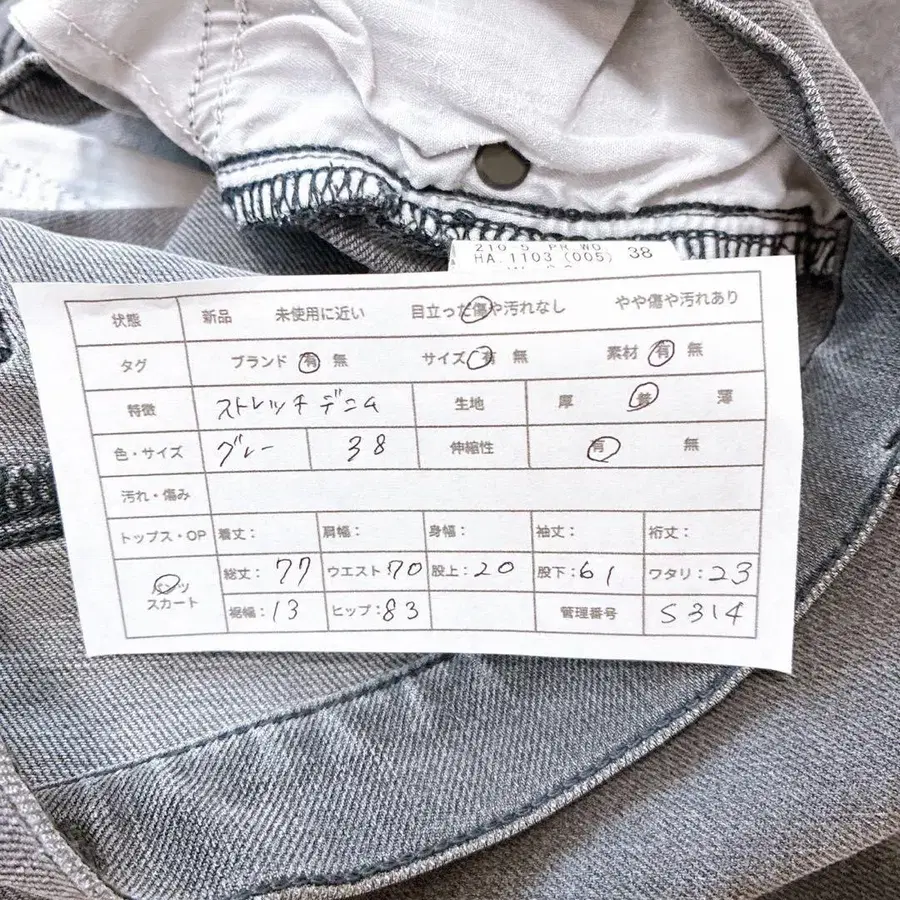 210 5 PR WO
HA.1103 (005) 38
状態 新品 未使用に近い 目立った傷や汚れなし やや傷や汚れあり
タグ ブランド 有 無 サイズ 有 無 素材 有 無
特徴 ストレッチデニム 生地 厚 薄
色・サイズ グレー 38 伸縮性 有 無
汚れ・傷み
トップス・OP 着丈: 肩幅: 身幅: 袖丈: 裄丈:
パンツ スカート 総丈: 77 ウエスト: 70 股上: 20 股下: 61 ワタリ: 23
裾幅: 13 ヒップ: 83 管理番号 S314